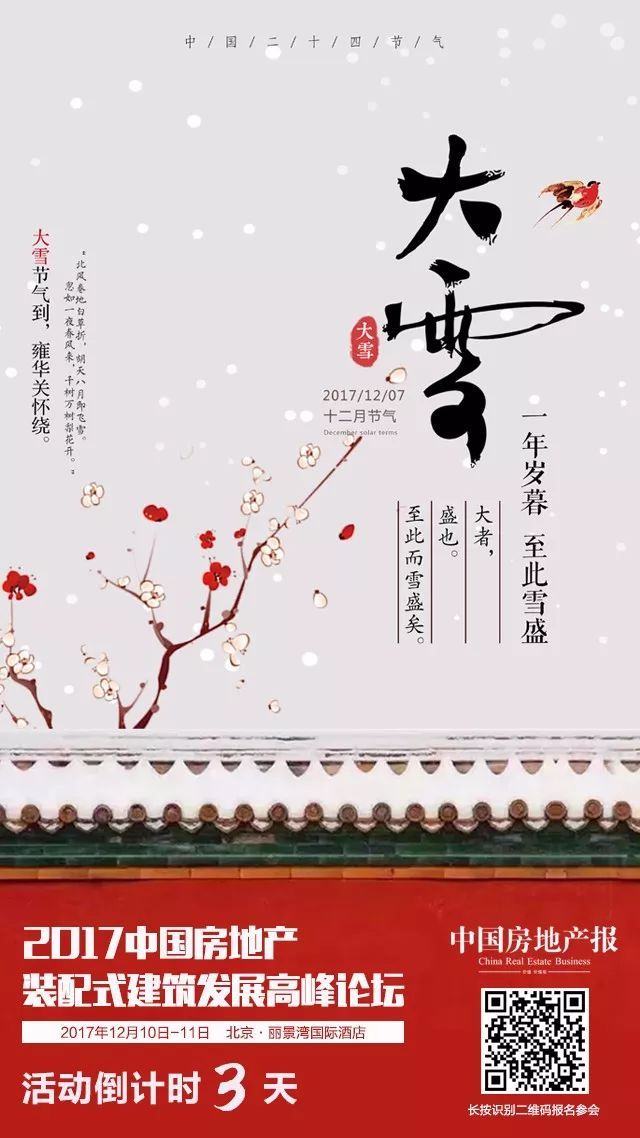 中/国/二/十/四/节/气
大雪
大雪
2017/12/07
十二月节气
December solar terms
一年岁暮 至此雪盛
大者，
盛也。
至此而雪盛矣。
“北风卷地白草折，胡天八月即飞雪。
忽如一夜春风来，千树万树梨花开。”
大雪节气到，雍华关怀绕。
2017中国房地产
装配式建筑发展高峰论坛
2017年12月10日-11日 北京·丽景湾国际酒店
活动倒计时 3 天
中国房地产报
China Real Estate Business
长按识别二维码报名参会